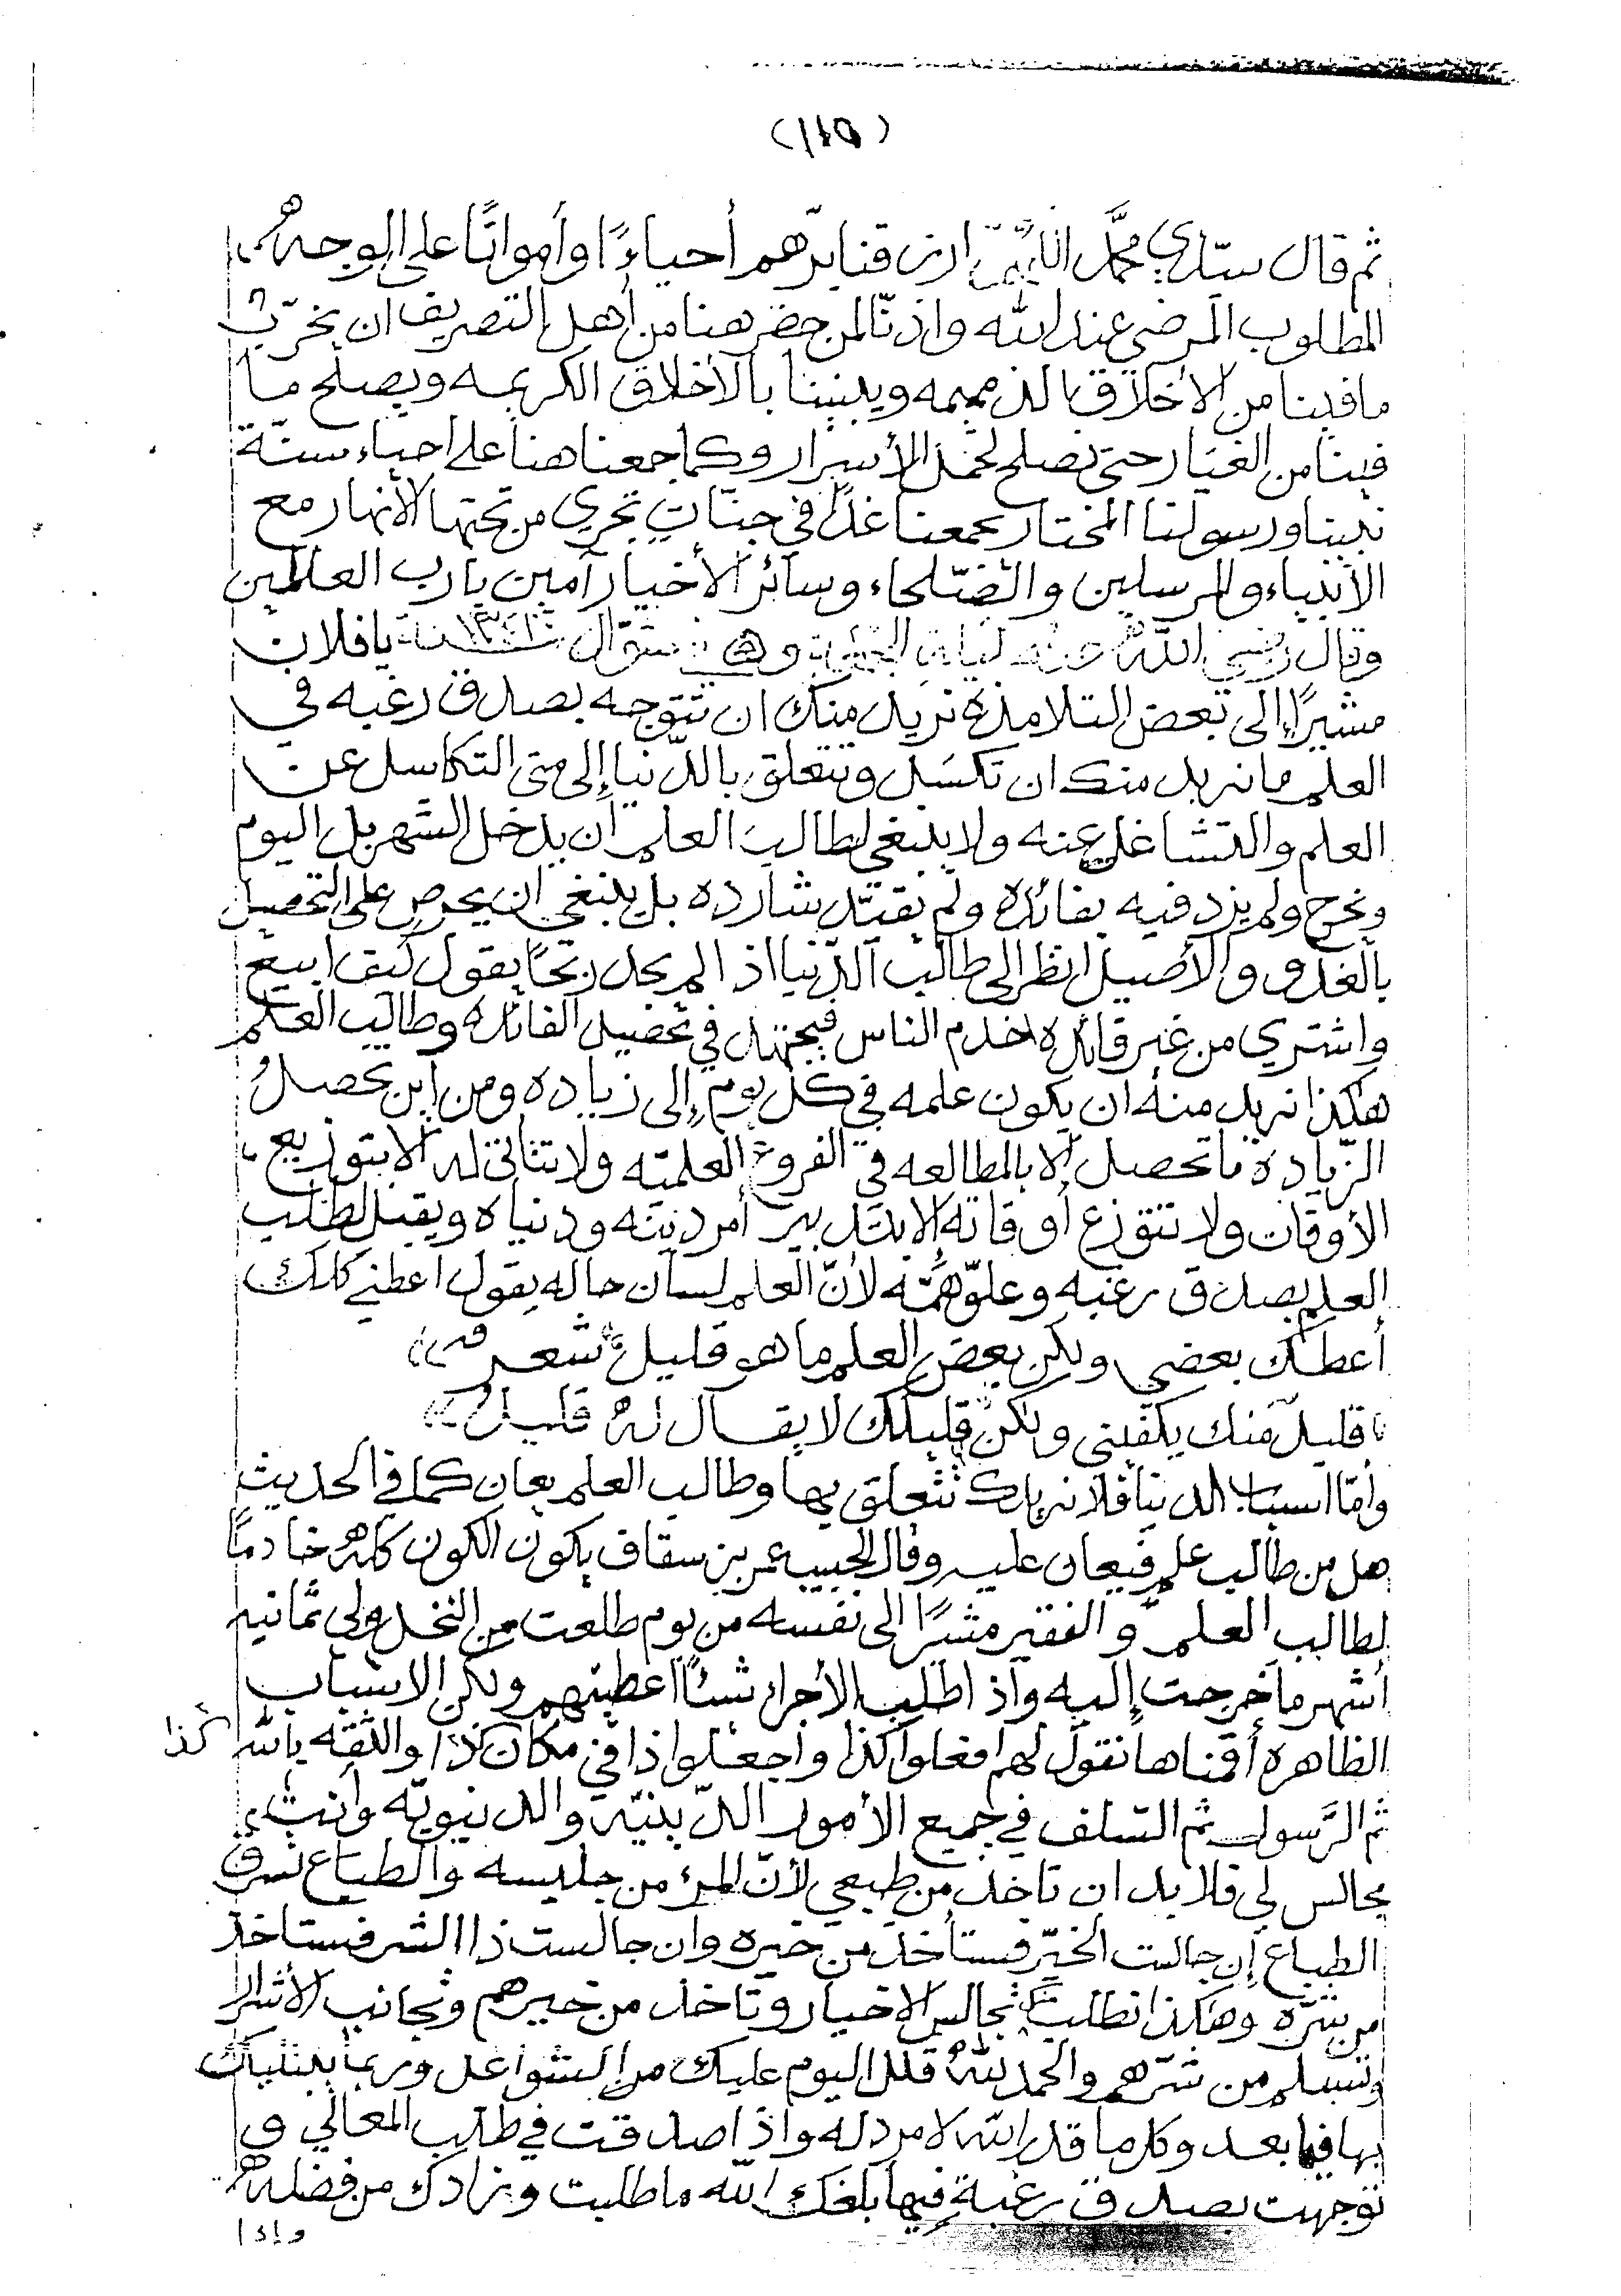 (١١٥)
ثم قال سيّدي محمَّد ارزقنا برّهم أحياءً وأمواتًا على الوجه
المطلوب المرضي عند الله واذنّا لمن حضر هنا من أهل التصريف ان يخرّب
ما فينا من الأخلاق الذميمه ويبنينا بالأخلاق الكريمه ويصلح ما
فينا من الغيار حتى نصلح لحمل الأسرار وكما جمعنا هنا على احياء سنّة
نبينا ورسولنا المختار يجمعنا غدًا في جنّاتٍ تجري من تحتها الأنهار مع
الأنبياء والمرسلين والصّلحاء وسائر الأخيار آمين يا رب العالمين
وقال رضي اللهُ عنه ليلة شوّال يا فلان
مشيرًا إلى بعض التلامذة نريد منك ان تتوجه بصدق رغبه في
العلم ما نريد منك ان تكسَل وتتعلق بالدّنيا إلى متى التكاسل عن
العلم والتشاغل عنه ولا ينبغي لطالب العلم أن يدخل الشهر بل اليوم
ويخرج ولم يزد فيه بفائده ولم يقيّد شارده بل ينبغي ان يحرص على التحصيل
بالغدو والأصيل انظر الى طالب الدّنيا اذا لم يجد ربحًا يقول كيف ابيع
واشتري من غير فائده اخدم الناس فيجتهد في تحصيل الفائده وطالب العلم
هكذا نريد منه ان يكون علمه في كل يومٍ إلى زياده ومن اين تحصلُ
الزّيادة ما تحصل الا بالمطالعه في الفروع العلميّه ولا تتأتى له الا بتوزيع
الأوقات ولا تتوزع أوقاته إلا بتدبير أمر دينه ودنياه ويقبل لطلب
العلم بصدق رغبه وعلوّ همَّه لأنّ العلم لسان حاله يقول اعطني كلك
أعطك بعضي ولكن بعض العلم ما هو قليل شعر
قليلٌ منك يكفيني ولكن قليلك لا يقال لهُ قليلُ
وامّا اسباب الدنيا فلا نريدك تتعلق بها وطالب العلم يعان كما في الحديث
هل من طالب علمٍ فيعان عليه وقال الحبيب عمر بن سقاف يكون الكون كلهُ خادمًا
لطالب العلم والفقير مشيرًا الى نفسه من يوم طلعت من النخل ولي ثمانيه
أشهر ما خرجت إليه واذا طلب الأجراء شيئًا أعطيتهم ولكن الاسباب
الظاهرة أقمناها نقول لهم افعلوا كذا واجعلوا ذا في مكان كذا والثقه بالله كذا
ثم الرَّسول ثم السّلف في جميع الأمور الدّينيّه والدنيويّه وأنت
مجالس لي فلا بد ان تاخذ من طبعي لأنّ المرء من جليسه والطباع تسرق
الطباع إن جالست الخيّر فستأخذ من خيره وان جالست ذا الشر فستاخذ
من شرّه وهكذا نطلبك تجالس الاخيار وتاخذ من خيرهم وتجانب الأشرار
وتسلم من شرّهم والحمد للهُ قلل اليوم عليك من الشواغل وربما يبتليك
بها فيما بعد وكل ما قدر الله لا مرد له واذا صدقت في طلب المعالي و
توجهت بصدق رغبةٍ فيها بلغك الله ما طلبت وزادك من فضله
وإذا